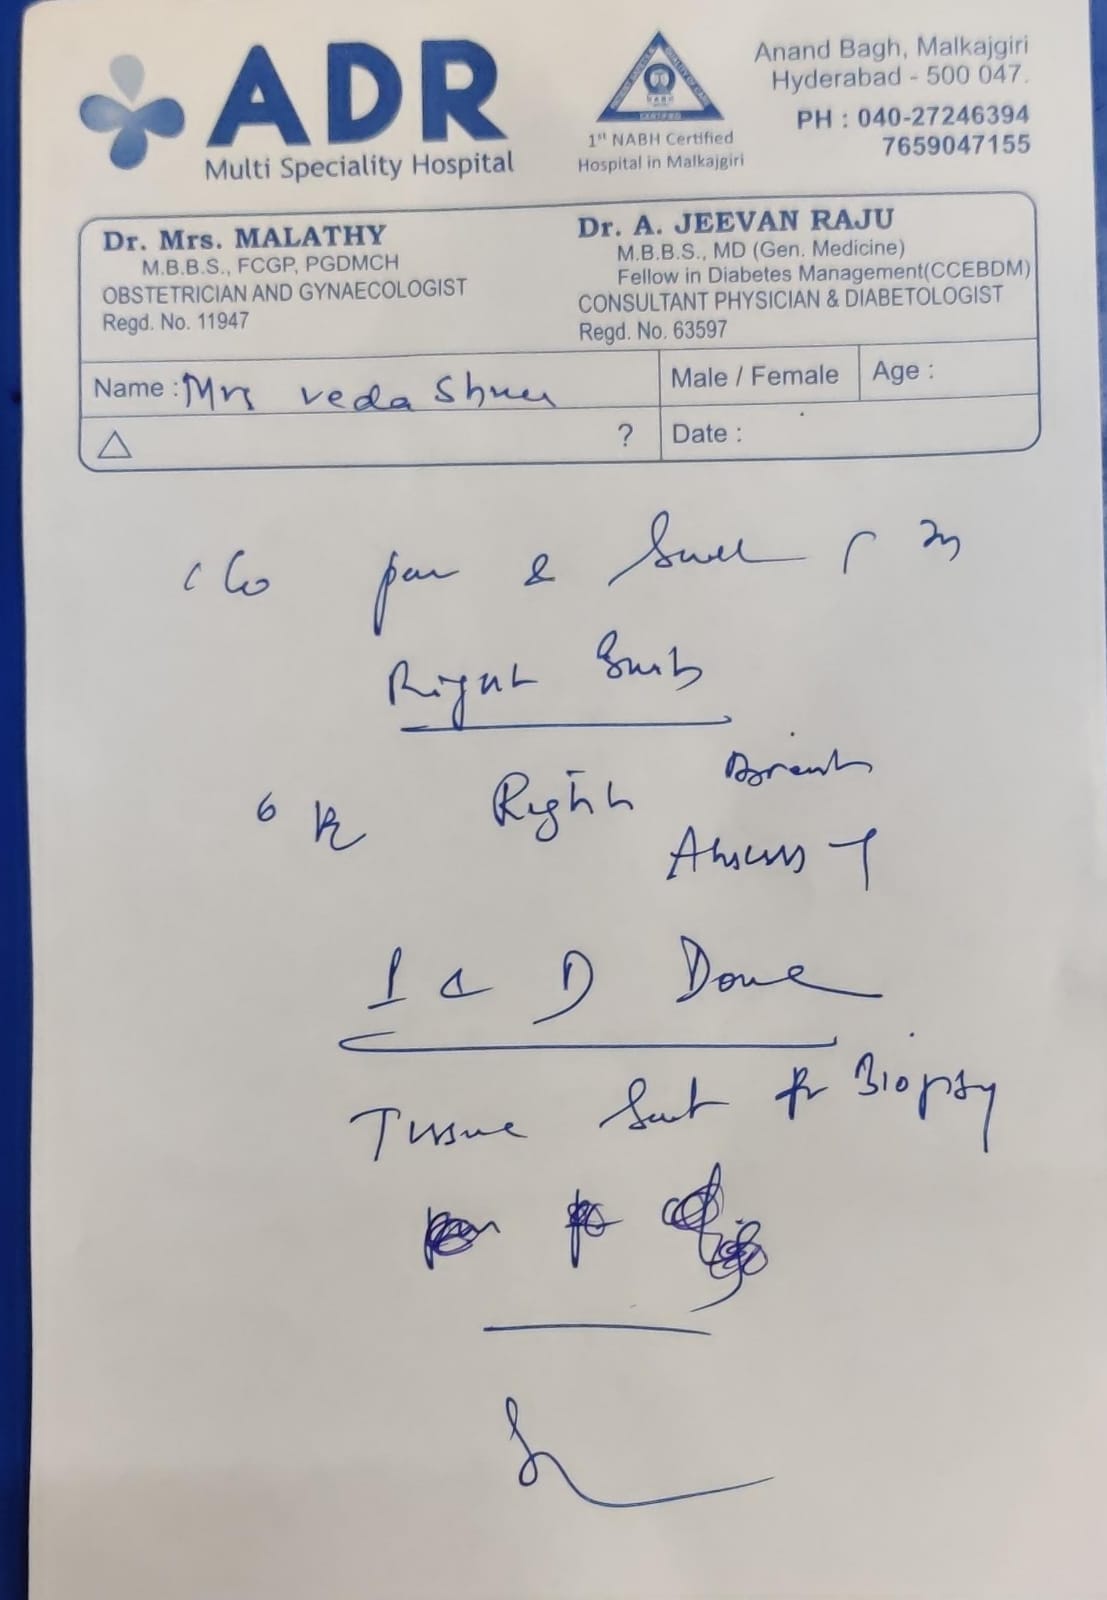 ADR
Multi Speciality Hospital
1st NABH Certified
Hospital in Malkajgiri
Anand Bagh, Malkajgiri
Hyderabad - 500 047.
PH : 040-27246394
7659047155
Dr. Mrs. MALATHY
M.B.B.S., FCGP, PGDMCH
OBSTETRICIAN AND GYNAECOLOGIST
Regd. No. 11947
Dr. A. JEEVAN RAJU
M.B.B.S., MD (Gen. Medicine)
Fellow in Diabetes Management(CCEBDM)
CONSULTANT PHYSICIAN & DIABETOLOGIST
Regd. No. 63597
Name : Mrs veda
Male / Female
Age :
?
Date :
c/o &
Right
Right Breast
Abscess
I & D Done
Tissue Sent for Biopsy